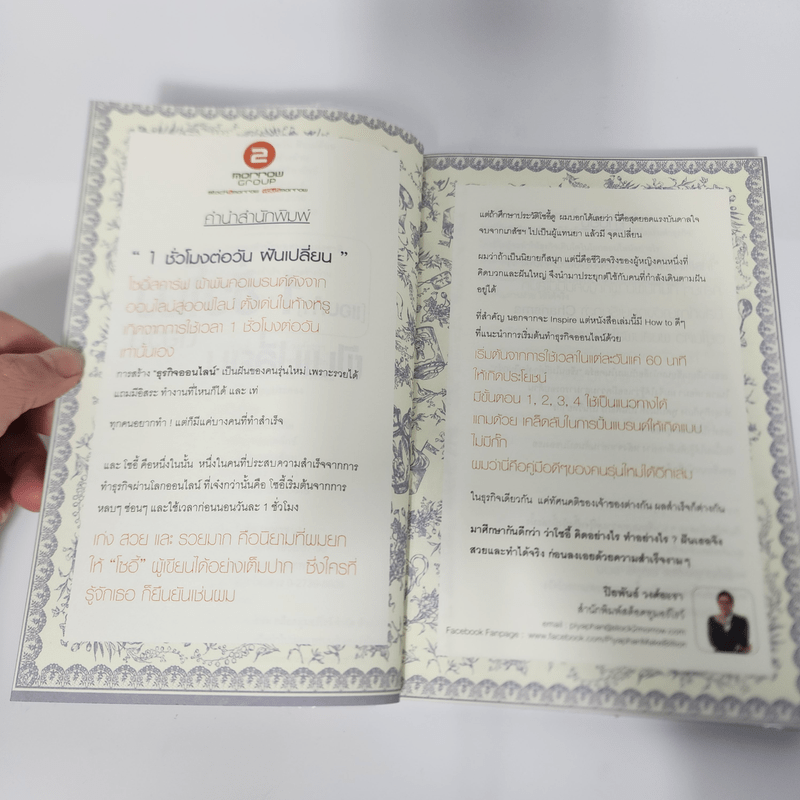 2
morrow
GROUP
คำนำสำนักพิมพ์
" 1 ชั่วโมงต่อวัน ฝันเปลี่ยน "
โชอี้สคาร์ฟ ผ้าพันคอแบรนด์ดังจาก
ออนไลน์สู่ออฟไลน์ ตั้งเด่นในห้างหรู
เกิดจากการใช้เวลา 1 ชั่วโมงต่อวัน
เท่านั้นเอง
การสร้าง "ธุรกิจออนไลน์" เป็นฝันของคนรุ่นใหม่ เพราะรวยได้
แถมมีอิสระ ทำงานที่ไหนก็ได้ และ เท่
ทุกคนอยากทำ ! แต่ก็มีแค่บางคนที่ทำสำเร็จ
และ โชอี้ คือหนึ่งในนั้น หนึ่งในคนที่ประสบความสำเร็จจากการ
ทำธุรกิจผ่านโลกออนไลน์ ที่เจ๋งกว่านั้นคือ โชอี้เริ่มต้นจากการ
หลบๆ ซ่อนๆ และใช้เวลาก่อนนอนวันละ 1 ชั่วโมง
เก่ง สวย และ รวยมาก คือนิยามที่ผมยก
ให้ "โชอี้" ผู้เขียนได้อย่างเต็มปาก ซึ่งใครที่
รู้จักเธอ ก็ยืนยันเช่นผม
แต่ถ้าศึกษาประวัติโชอี้ดู ผมบอกได้เลยว่า นี่คือสุดยอดแรงบันดาลใจ
จบจากเภสัชฯ ไปเป็นผู้แทนยา แล้วมี จุดเปลี่ยน
ผมว่าถ้าเป็นนิยายก็สนุก แต่นี่คือชีวิตจริงของผู้หญิงคนหนึ่งที่
คิดบวกและฝันใหญ่ จึงนำมาประยุกต์ใช้กับคนที่กำลังเดินตามฝัน
อยู่ได้
ที่สำคัญ นอกจากจะ Inspire แต่หนังสือเล่มนี้มี How to ดีๆ
ที่แนะนำการเริ่มต้นทำธุรกิจออนไลน์ด้วย
เริ่มต้นจากการใช้เวลาในแต่ละวันแค่ 60 นาที
ให้เกิดประโยชน์
มีขั้นตอน 1, 2, 3, 4 ใช้เป็นแนวทางได้
แถมด้วย เคล็ดลับในการปั้นแบรนด์ให้เกิดแบบ
ไม่มีกั๊ก
ผมว่านี่คือคู่มือดีๆของคนรุ่นใหม่ได้อีกเล่ม
ในธุรกิจเดียวกัน แต่ทัศนคติของเจ้าของต่างกัน ผลสำเร็จก็ต่างกัน
มาศึกษากันดีกว่า ว่าโชอี้ คิดอย่างไร ทำอย่างไร ? ฝันเธอจึง
สวยและทำได้จริง ก่อนลงเอยด้วยความสำเร็จงามๆ
ปิยพันธ์ วงศ์ยะรา
สำนักพิมพ์สต็อคทูมอร์โรว์
email : piyaphan@stock2morrow.com
Facebook Fanpage : www.facebook.com/PiyaphanMakeBillion